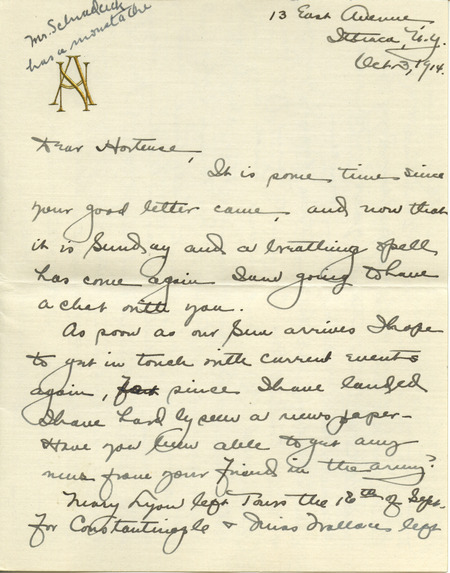 Mr. Schnadeck
has a moustache
13 East Avenue
Ithaca, N.Y.
Oct 3, 1914.
Dear Hortense,
It is some time since
your good letter came, and now that
it is Sunday and a breathing spell
has come again I am going to have
a chat with you.
As soon as our Sun arrives I hope
to get in touch with current events
again, for since I have landed
I have hardly seen a newspaper –
Have you been able to get any
news from your friend in the army?
Mary Lyon left Tours the 18th of Sept.
for Constantinople & Miss Wallace left